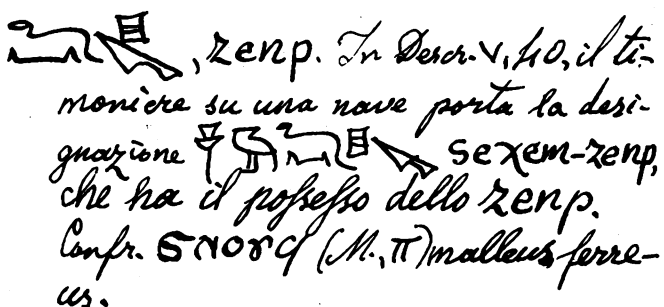 , zenp. In Descr. V, 40, il ti-
moniere su una nave porta la desi-
gnazione seχem-zenp,
che ha il possesso dello zenp.
Confr. ϭⲛⲟⲩϥ (M., π) malleus ferre-
us.